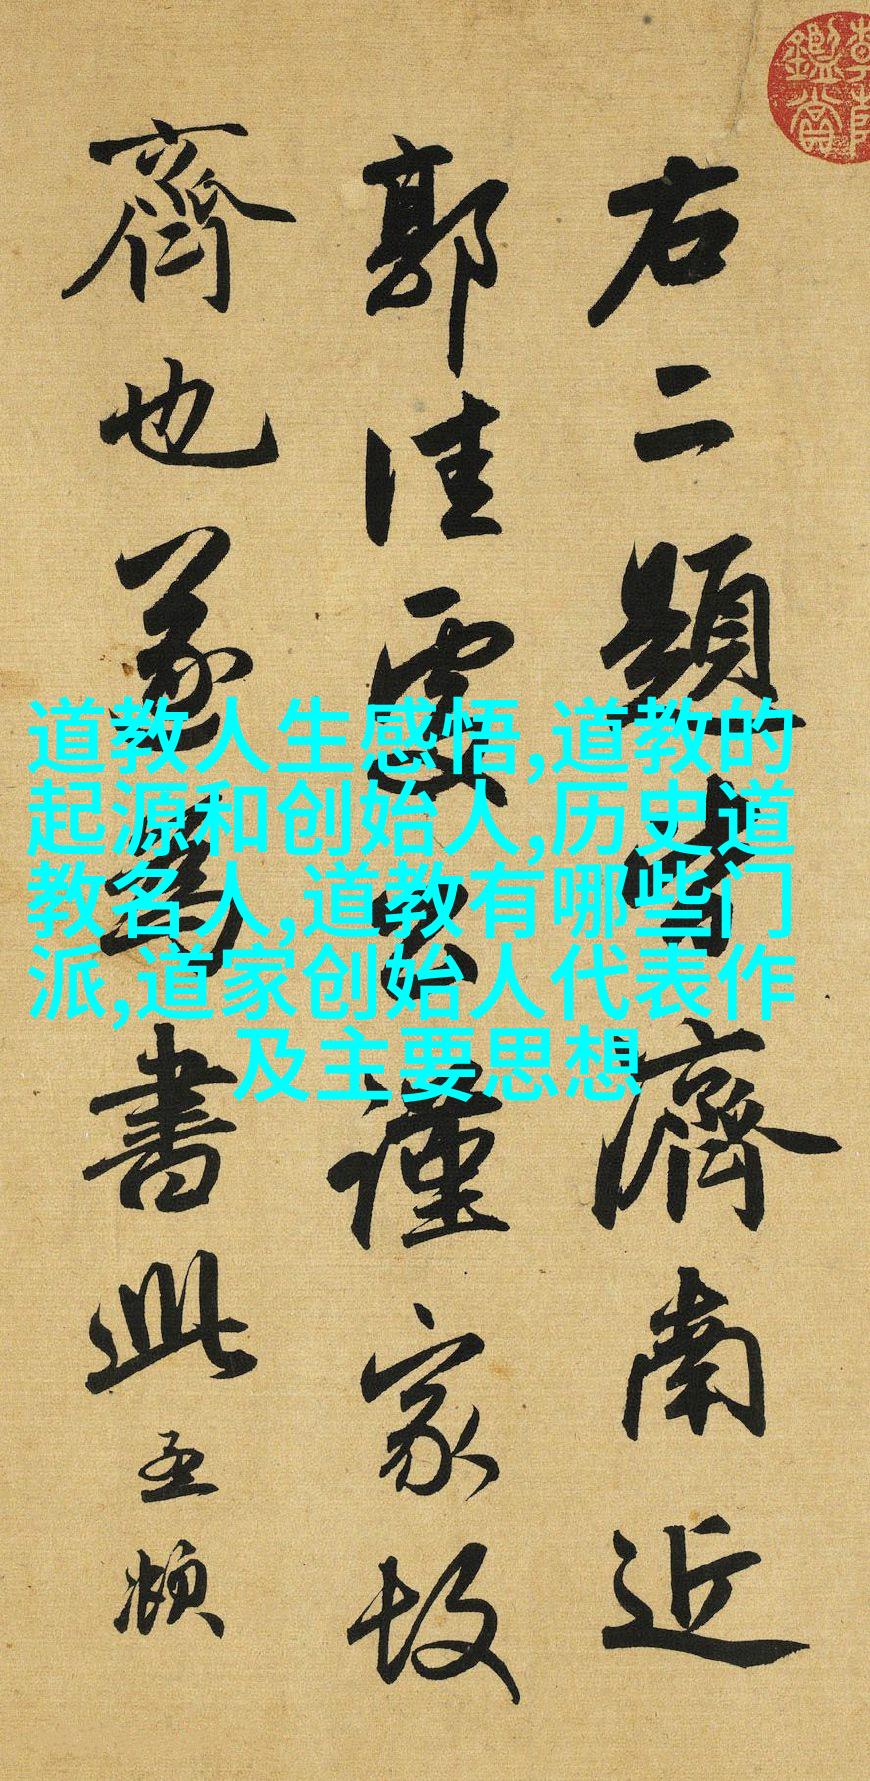 右二題皆濟南近
郭佳處公謹家故
齊也遂為書此孟頫
鑑賞
道教人生感悟,道教的
起源和创始人,历史道
教名人,道教有哪些门
派,道家创始人代表作
及主要思想